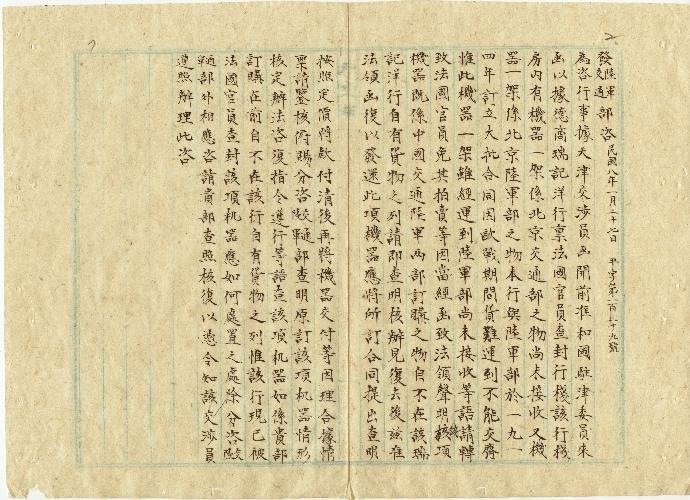 發陸軍交通部咨 民國八年一月二十七日 平字第一百六十九號
為咨行事據天津交涉員函開前准和國駐津委員來
函以據德商瑞記洋行稟法國官員查封行棧該行棧
房內有機器一架係北京交通部之物尚未接收又機
器一架係北京陸軍部之物本行與陸軍部於一九一
四年訂立大批合同因歐戰期間貨難運到不能交齊
惟此機器一架雖經運到陸軍部尚未接收等語請轉
致法國官員免其拍賣等因當經函致法領聲明該項
機器既係中國交通陸軍兩部訂購之物自不在該瑞
記洋行自有貨物之列請即查明核辦見復去後茲准
法領函復以發還此項機器應將所訂合同提出查明
按照定價將款付清後再將機器交付等因理合據情
稟請鑒核俯賜分咨陸軍交通部查明原訂該項機器情形
核定辦法咨復指令遵行等語查該項机器如係貴部
訂購在前自不在該行自有貨物之列惟該行現已被
法國官員查封該項机器應如何處置之處除分咨陸軍
交通部外相應咨請貴部查照核復以憑令知該交涉員
遵照辦理此咨